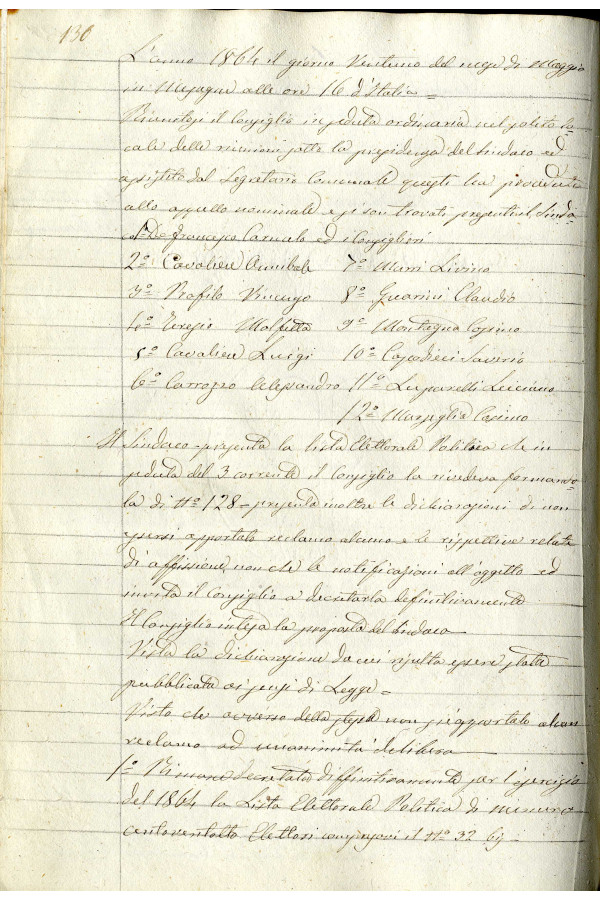 130
L'anno 1864 il giorno Ventuno del mese di Maggio
in Mesagne alle ore 16 d'Italia =
Riunitosi il Consiglio in seduta ordinaria nel solito lo-
cale delle riunioni sotto la presidenza del Sindaco ed
assistito dal Segretario Comunale questi ha proceduto
allo appello nominale e si son trovati presenti il Sinda-
co De Francesco Carmelo ed i Consiglieri
2º Cavaliere Annibale 7º Murri Livino
3º Profilo Vincenzo 8º Guarini Claudio
4º Teresio Malfatto 9º Montagna Cosimo
5º Cavaliere Luigi 10º Capodieci Saverio
6º Carrozzo Alessandro 11º Luparelli Luciano
12º Marsiglia Cosimo
Il Sindaco presenta la lista Elettorale Politica che in
seduta del 3 corrente il Consiglio la rivedeva forman_o-
la di Nº 128 = presenta inoltre le dichiarazioni di non
essersi apportato reclamo alcuno e le rispettive relate
di affissione, non che le notificazioni all'oggetto ed
invita il Consiglio a decretarla definitivamente
Il Consiglio intesa la proposta del Sindaco
Vista la dichiarazione da cui risulta essere stata
pubblicata ai sensi di Legge =
Visto che avverso della stessa non si è apportato alcun
reclamo ad unanimità delibera
1º Rimane decretata diffinitivamente per l'esercizio
del 1864 la Lista Elettorale Politica di numero
centoventotto Elettori compresovi il Nº 32 bis =